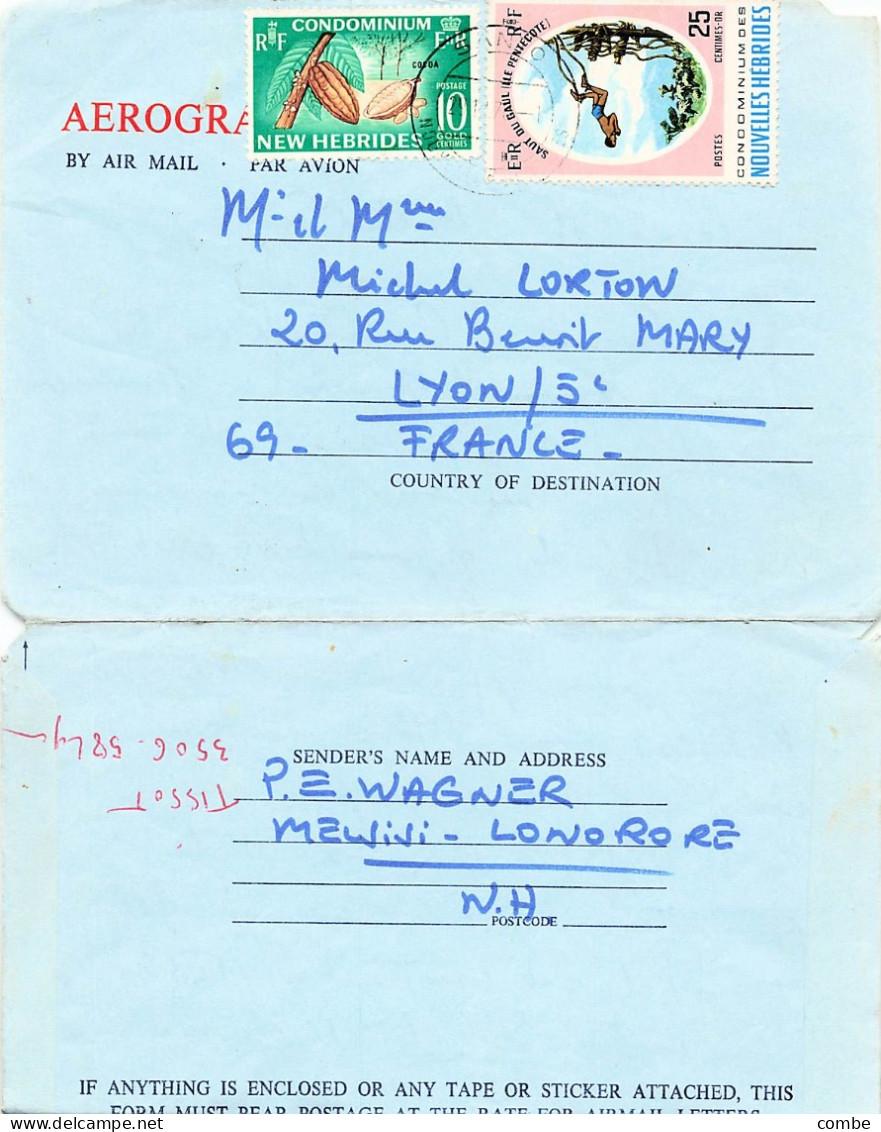 CONDOMINIUM
RF EIIR
COCOA
POSTAGE
10
GOLD
CENTIMES
NEW HEBRIDES
RF EIIR
SAUT DU GAUL (ILE PENTECÔTE)
25
CENTIMES-OR
POSTES
CONDOMINIUM DES
NOUVELLES HEBRIDES
AEROGRA
BY AIR MAIL · PAR AVION
M. et Mme
Michel LORTON
20, Rue Benoit MARY
LYON / 5e
69 - FRANCE -
COUNTRY OF DESTINATION
3506 - 58
TISSOT
SENDER'S NAME AND ADDRESS
P.E. WAGNER
MELSISI - LONORORE
N.H.
POSTCODE
IF ANYTHING IS ENCLOSED OR ANY TAPE OR STICKER ATTACHED, THIS
FORM MUST BEAR POSTAGE AT THE RATE FOR AIRMAIL LETTERS
Delcampe.net
combe